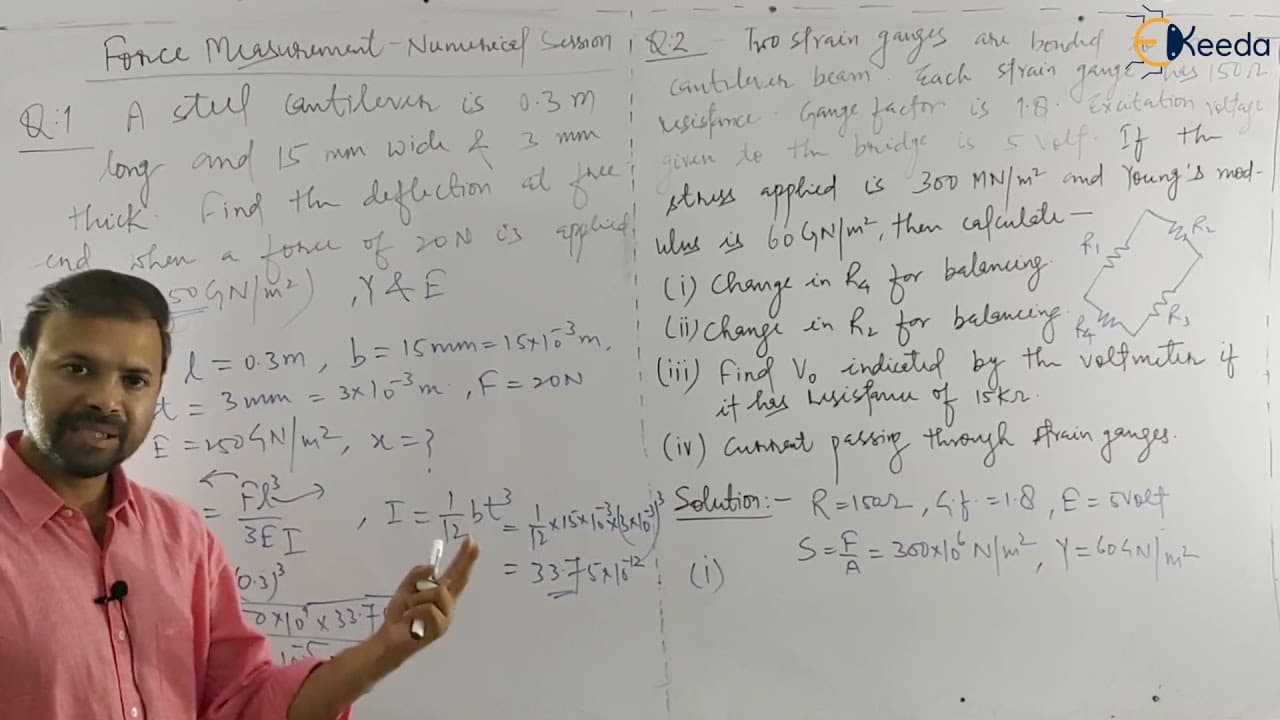 Force Measurement - Numerical Session
Q:1 A steel cantilever is 0.3 m
long and 15 mm wide & 3 mm
thick. Find the deflection at free
end when a force of 20N is applied
50 GN/m²) , Y & E
l = 0.3m , b = 15mm = 15×10⁻³m,
t = 3 mm = 3×10⁻³m , F = 20N
E = 250 GN/m², x = ?
= Fl³/3EI , I = 1/12 bt³ = 1/12 × 15×10⁻³×(3×10⁻³)³
= 33.75×10⁻¹²
(0.3)³
0×10⁹ × 33.7
Keeda
Q.2 Two strain gauges are bonded to
cantilever beam. Each strain gauge has 150Ω
resistance. Gauge factor is 1.8. Excitation voltage
given to the bridge is 5 volt. If the
stress applied is 300 MN/m² and Young's mod-
ulus is 60 GN/m², then calculate —
(i) Change in R4 for balancing.
(ii) Change in R2 for balancing.
(iii) Find V₀ indicated by the voltmeter if
it has resistance of 15KΩ.
(iv) Current passing through strain gauges.
R1
R2
R4
R3
Solution:- R = 150Ω , G.f. = 1.8 , E = 5volt
S = F/A = 300×10⁶ N/m² , Y = 60 GN/m²
(i)